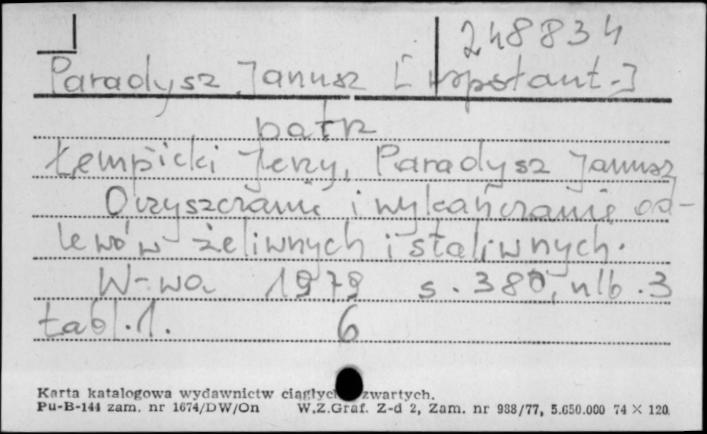 248834
Paradysz Janusz [współaut.]
patrz
Łempicki Jerzy, Paradysz Janusz
Oczyszczanie i wykańczanie od-
lewów żeliwnych i staliwnych.
W-wa 1979 s. 380, nlb. 3
tabl. 1.
6
Karta katalogowa wydawnictw ciągłyc zwartych.
Pu-B-144 zam. nr 1674/DW/On W.Z.Graf. Z-d 2, Zam. nr 988/77, 5.650.000 74 × 120